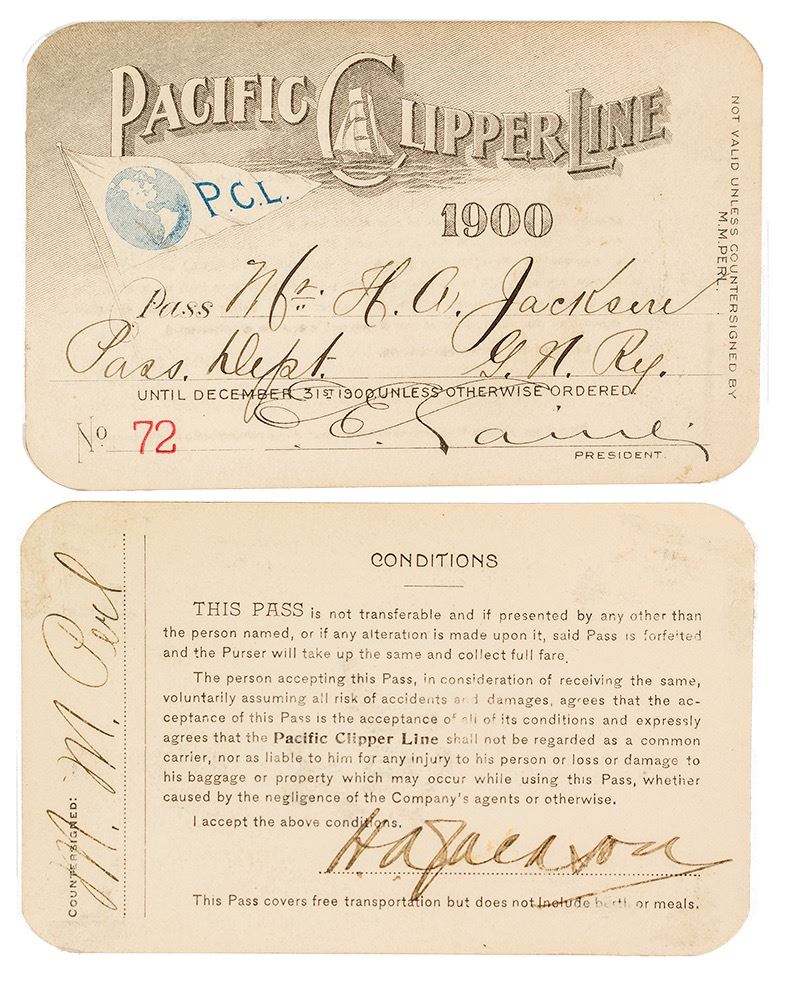 PACIFIC CLIPPER LINE
P.C.L.
1900
NOT VALID UNLESS COUNTERSIGNED BY
M.M.PERL.
Pass Mr. H. A. Jackson
Pass. Dept. G. N. Ry.
UNTIL DECEMBER 31ST 1900, UNLESS OTHERWISE ORDERED.
No 72
PRESIDENT.
COUNTERSIGNED:
M. M. Perl
CONDITIONS
THIS PASS is not transferable and if presented by any other than
the person named, or if any alteration is made upon it, said Pass is forfeited
and the Purser will take up the same and collect full fare.
The person accepting this Pass, in consideration of receiving the same,
voluntarily assuming all risk of accidents and damages, agrees that the ac-
ceptance of this Pass is the acceptance of all of its conditions and expressly
agrees that the Pacific Clipper Line shall not be regarded as a common
carrier, nor as liable to him for any injury to his person or loss or damage to
his baggage or property which may occur while using this Pass, whether
caused by the negligence of the Company's agents or otherwise.
I accept the above conditions.
H A Jackson
This Pass covers free transportation but does not Include berth or meals.